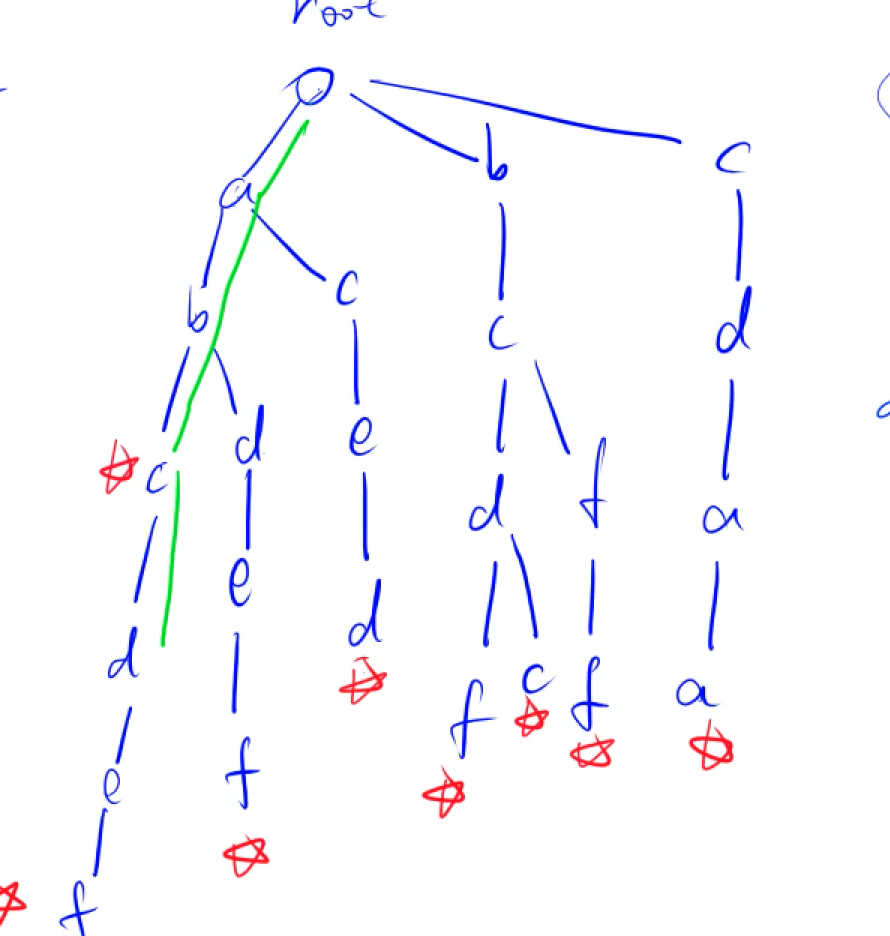 root
a b c
b c c d
c d e d f a
d e d f c f a
e f
f